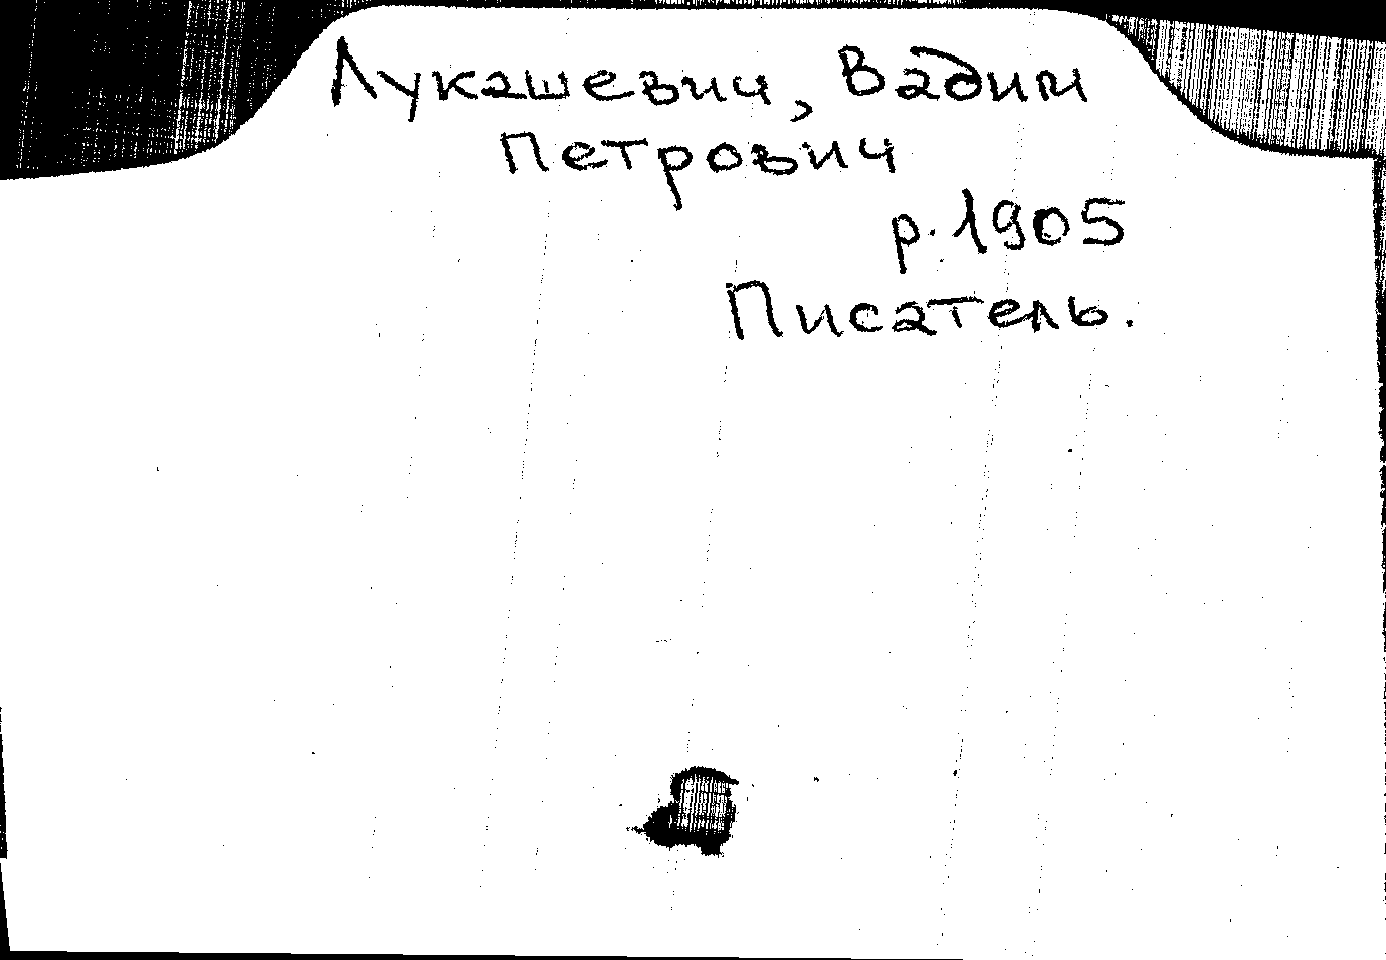 Лукашевич, Вадим
Петрович
р. 1905
Писатель.